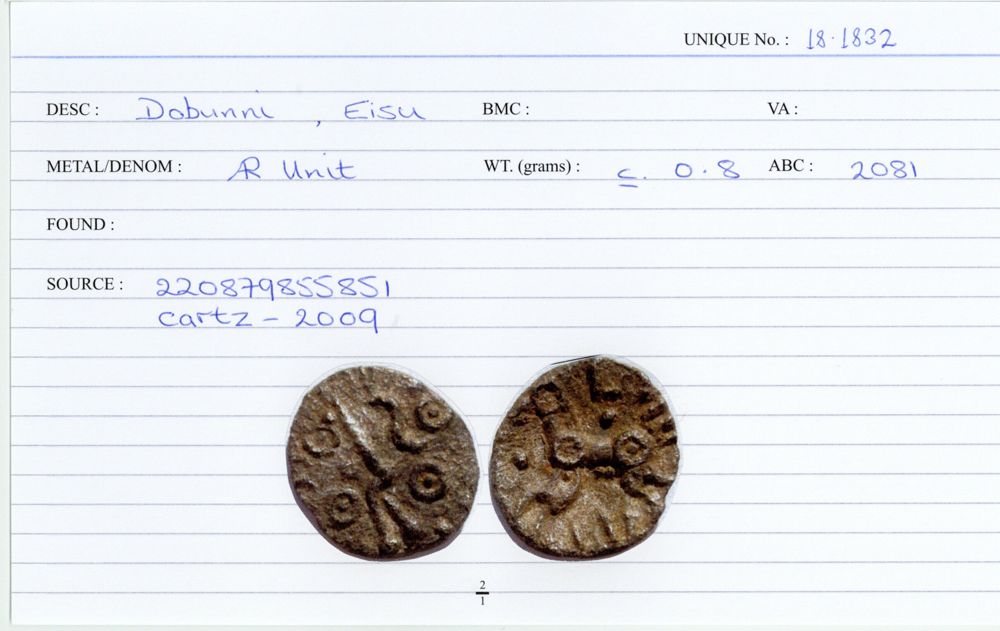 UNIQUE No. : 18.1832
DESC : Dobunni , Eisu BMC : VA :
METAL/DENOM : AR Unit WT. (grams) : c. 0.8 ABC : 2081
FOUND :
SOURCE : 220879855851
cartz - 2009
2
1